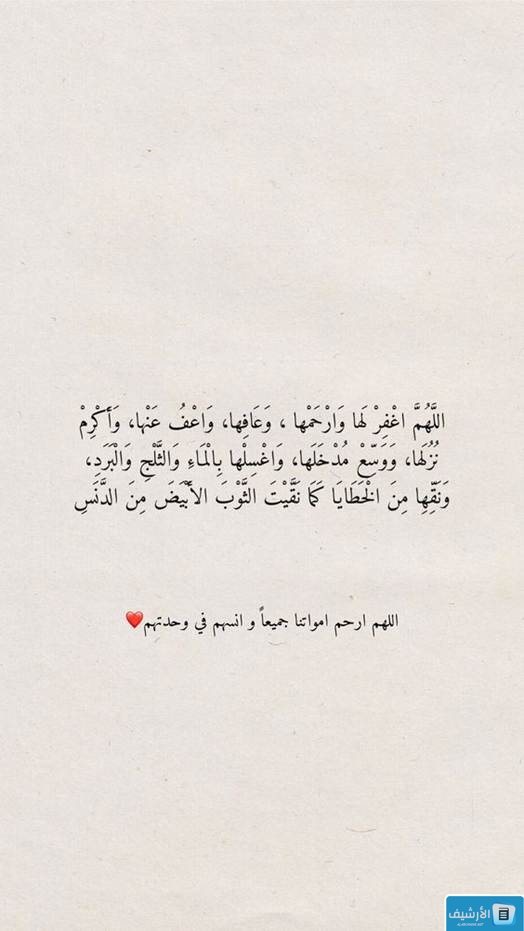 اللَّهُمَّ اغْفِرْ لَها وَارْحَمْها ، وَعَافِها، وَاعْفُ عَنْها، وَأَكْرِمْ
نُزُلَها، وَوَسِّعْ مُدْخَلَها، وَاغْسِلْها بِالْمَاءِ وَالثَّلْجِ وَالْبَرَدِ،
وَنَقِّهِا مِنَ الْخَطَايَا كَمَا نَقَّيْتَ الثَّوْبَ الأَبْيَضَ مِنَ الدَّنَسِ
اللهم ارحم امواتنا جميعاً و انسهم في وحدتهم❤️
الأرشيف